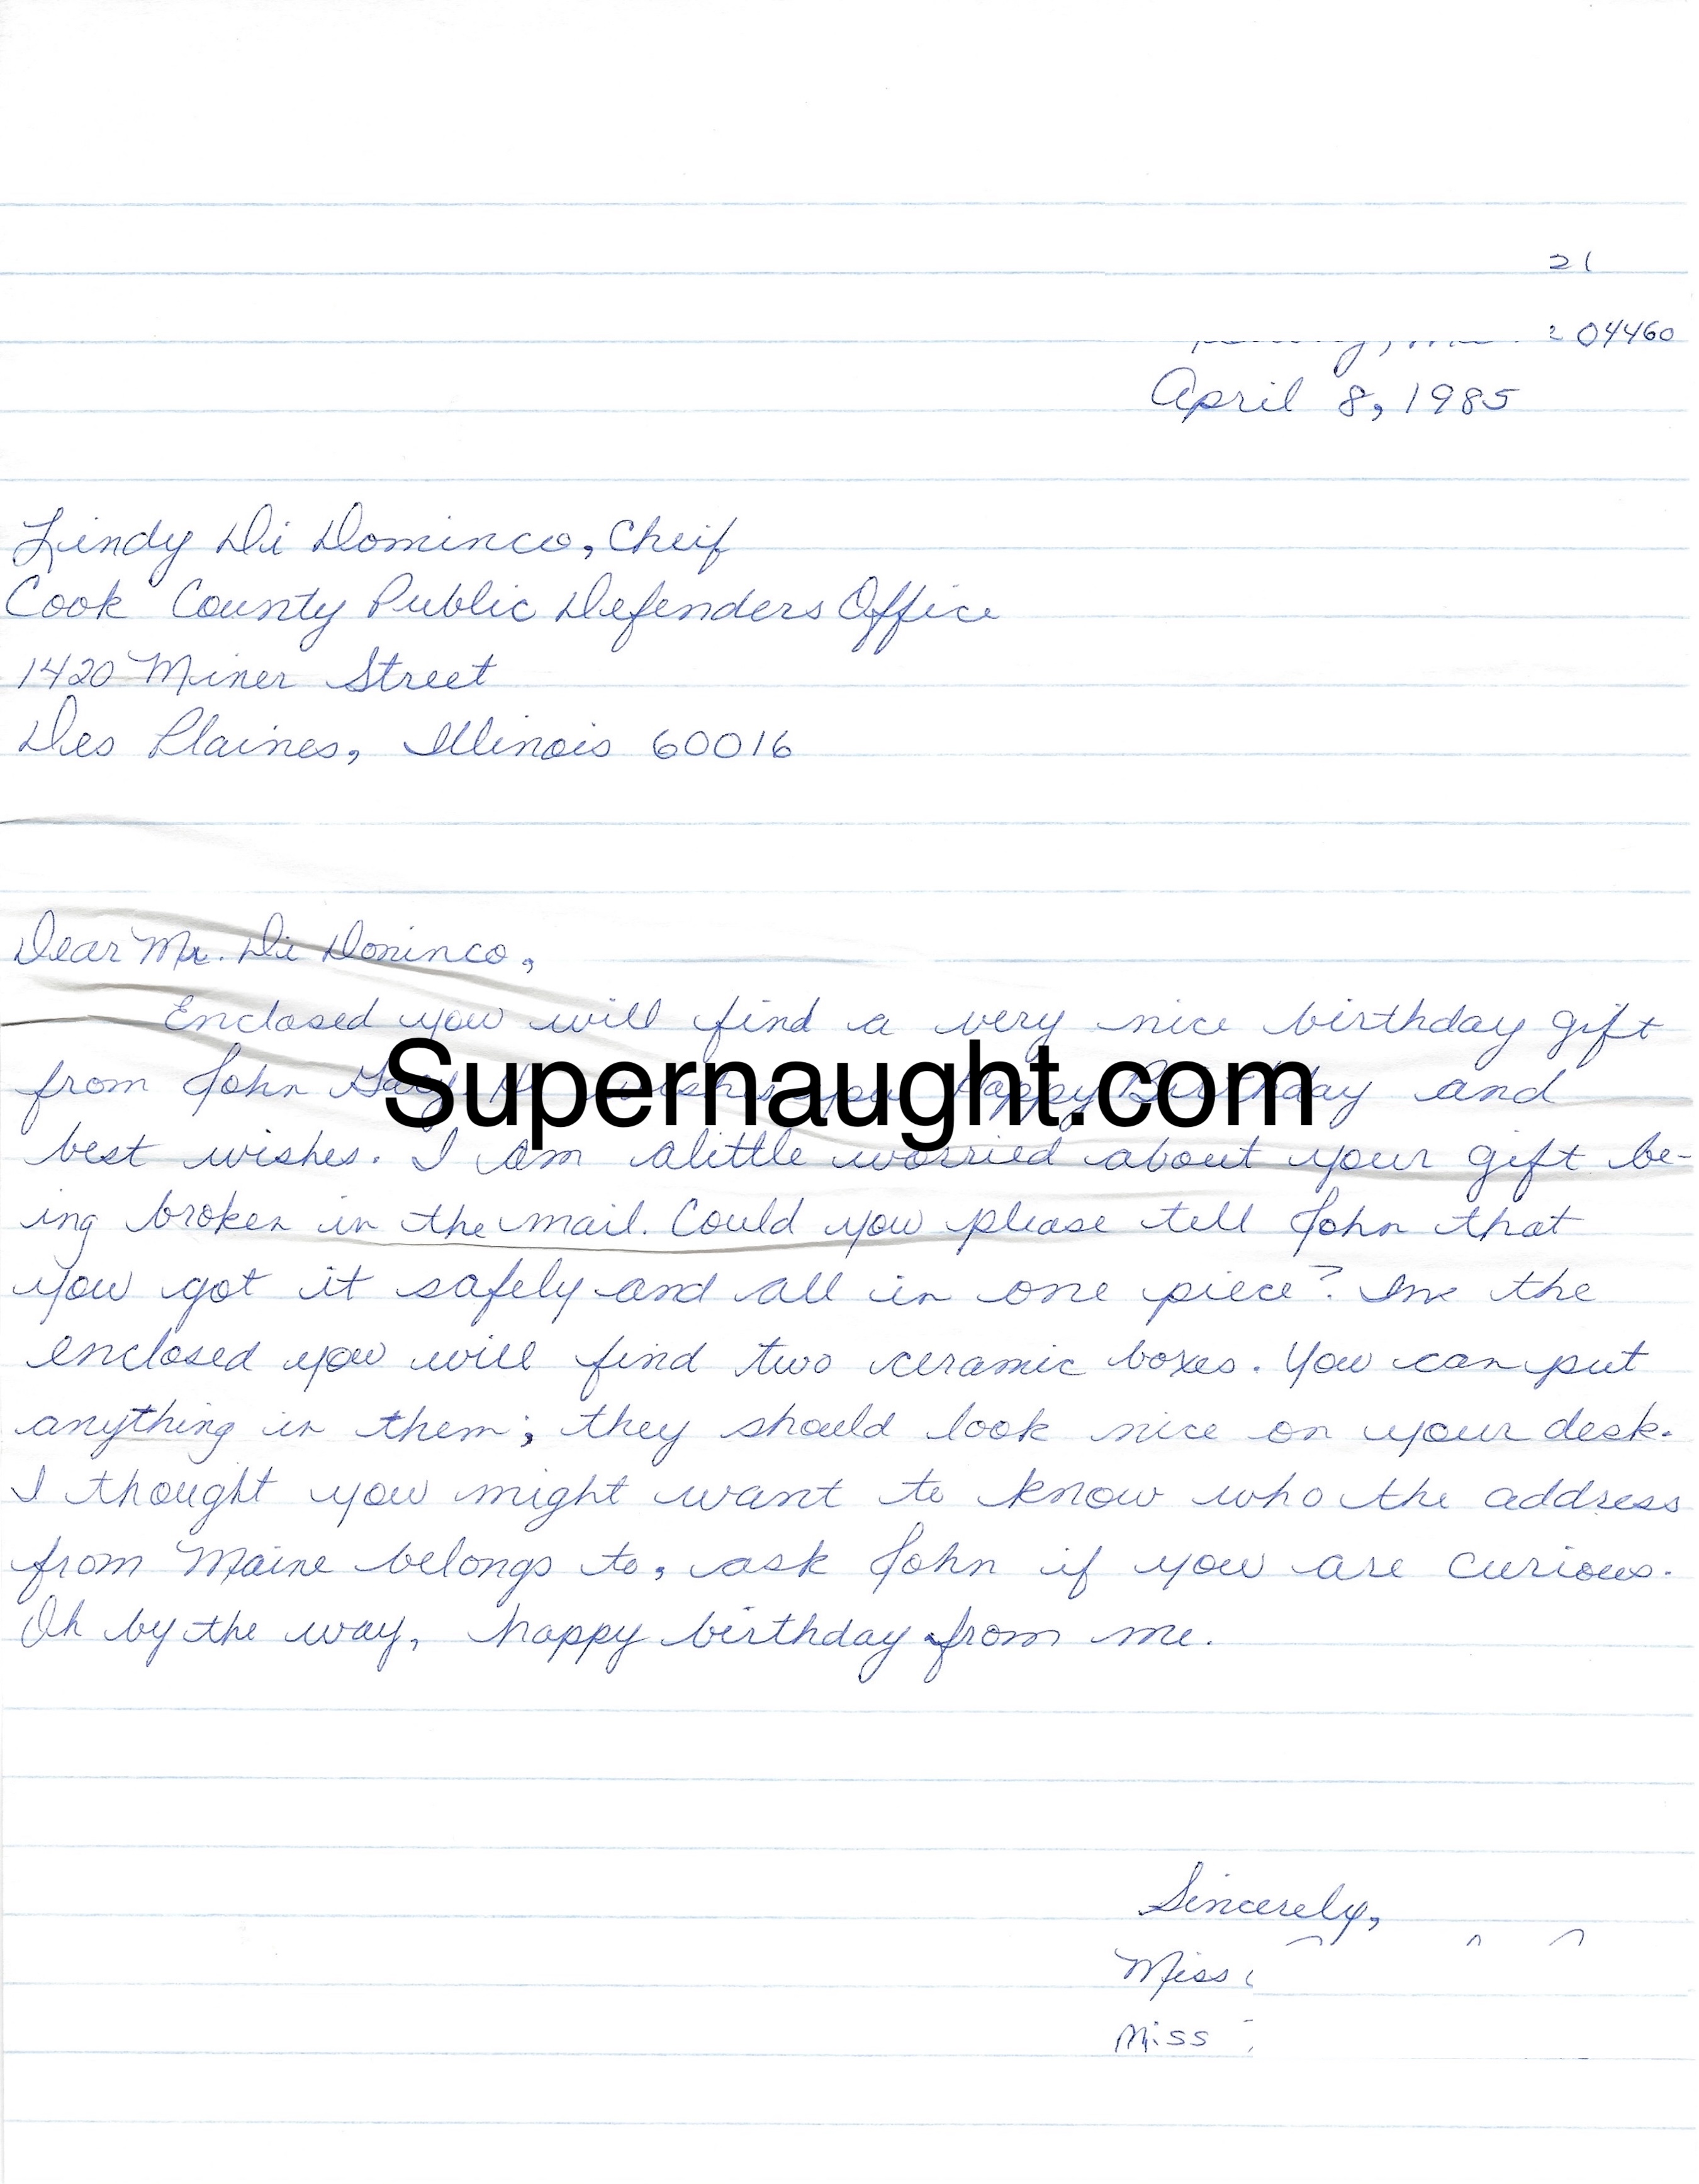 21
04460
April 8, 1985
Lindy Di Dominco, Cheif
Cook County Public Defenders Office
1420 Miner Street
Des Plaines, Illinois 60016
Dear Mr. Di Doninco,
Enclosed you will find a very nice birthday gift
Supernaught.com
from John wishes you Happy Birthday and
best wishes. I am alittle worried about your gift be-
ing broken in the mail. Could you please tell John that
you got it safely and all in one piece? In the
enclosed you will find two ceramic boxes. You can put
anything in them; they should look nice on your desk.
I thought you might want to know who the address
from Maine belongs to, ask John if you are curious.
Oh by the way, happy birthday from me.
Sincerely,
Miss
Miss